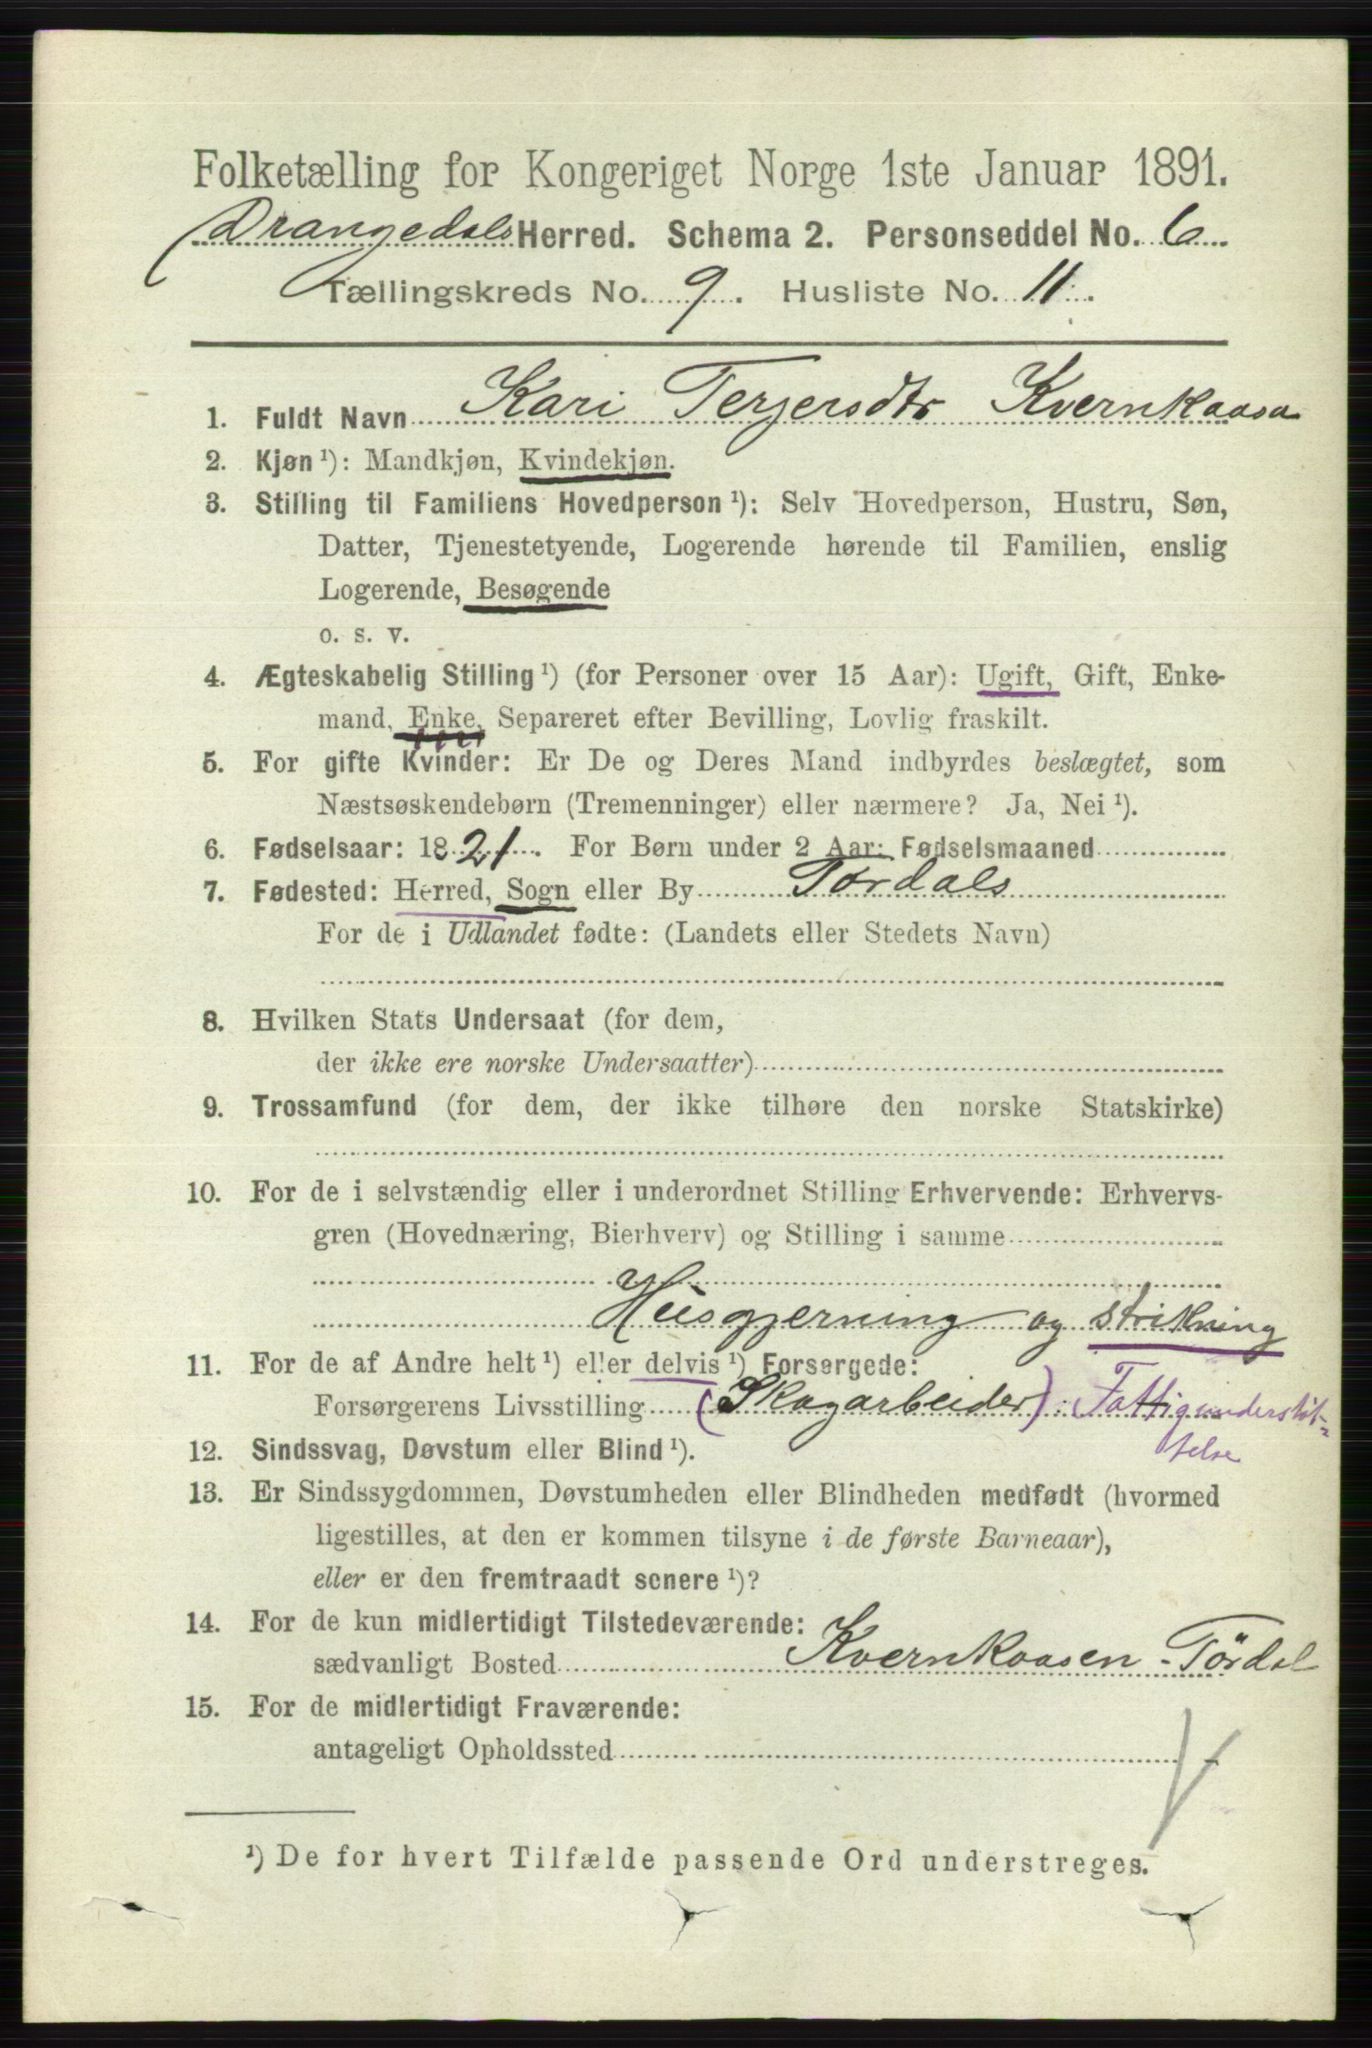 Folketælling for Kongeriget Norge 1ste Januar 1891.
Drangedals Herred. Schema 2. Personseddel No. 6
Tællingskreds No. 9. Husliste No. 11.
1. Fuldt Navn Kari Terjersdtr Kvernkaasa
2. Kjøn ¹): Mandkjøn, Kvindekjøn.
3. Stilling til Familiens Hovedperson ¹): Selv Hovedperson, Hustru, Søn,
Datter, Tjenestetyende, Logerende hørende til Familien, enslig
Logerende, Besøgende
o. s. v.
4. Ægteskabelig Stilling ¹) (for Personer over 15 Aar): Ugift, Gift, Enke-
mand, Enke, Separeret efter Bevilling, Lovlig fraskilt.
5. For gifte Kvinder: Er De og Deres Mand indbyrdes beslægtet, som
Næstsøskendebørn (Tremenninger) eller nærmere? Ja, Nei ¹).
6. Fødselsaar: 1821. For Børn under 2 Aar: Fødselsmaaned
7. Fødested: Herred, Sogn eller By Tørdals
For de i Udlandet fødte: (Landets eller Stedets Navn)
8. Hvilken Stats Undersaat (for dem,
der ikke ere norske Undersaatter)
9. Trossamfund (for dem, der ikke tilhøre den norske Statskirke)
10. For de i selvstændig eller i underordnet Stilling Erhvervende: Erhvervs-
gren (Hovednæring, Bierhverv) og Stilling i samme
Husgjerning og strikning
11. For de af Andre helt ¹) eller delvis ¹) Forsørgede:
Forsørgerens Livsstilling (Skogarbeider) Fattigunderstøt-
telse
12. Sindssvag, Døvstum eller Blind ¹).
13. Er Sindssygdommen, Døvstumheden eller Blindheden medfødt (hvormed
ligestilles, at den er kommen tilsyne i de første Barneaar),
eller er den fremtraadt senere ¹)?
14. For de kun midlertidigt Tilstedeværende:
sædvanligt Bosted Kvernkaasen - Tördal
15. For de midlertidigt Fraværende:
antageligt Opholdssted
¹) De for hvert Tilfælde passende Ord understreges.